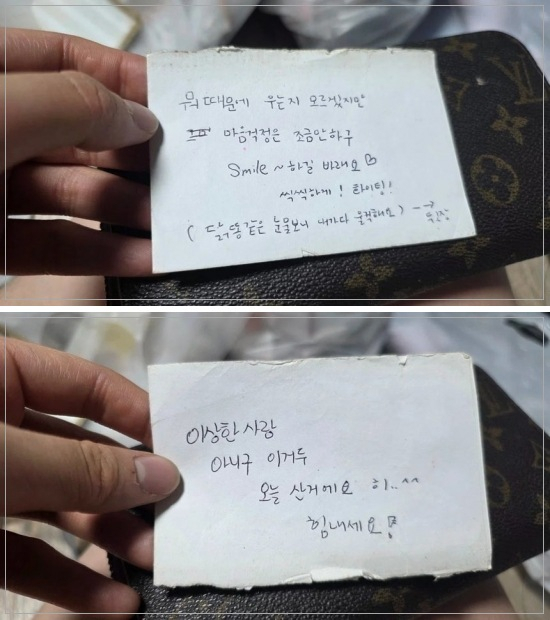 뭐 때문에 우는지 모르겠지만
마음걱정은 조금만하구
Smile ~ 하길 바래요
씩씩하게! 화이팅!
(닭똥같은 눈물보니 내가다 울컥해요) -→
이상한 사람
아니구 이거두
오늘 산거에요 히..^^
힘내세요!